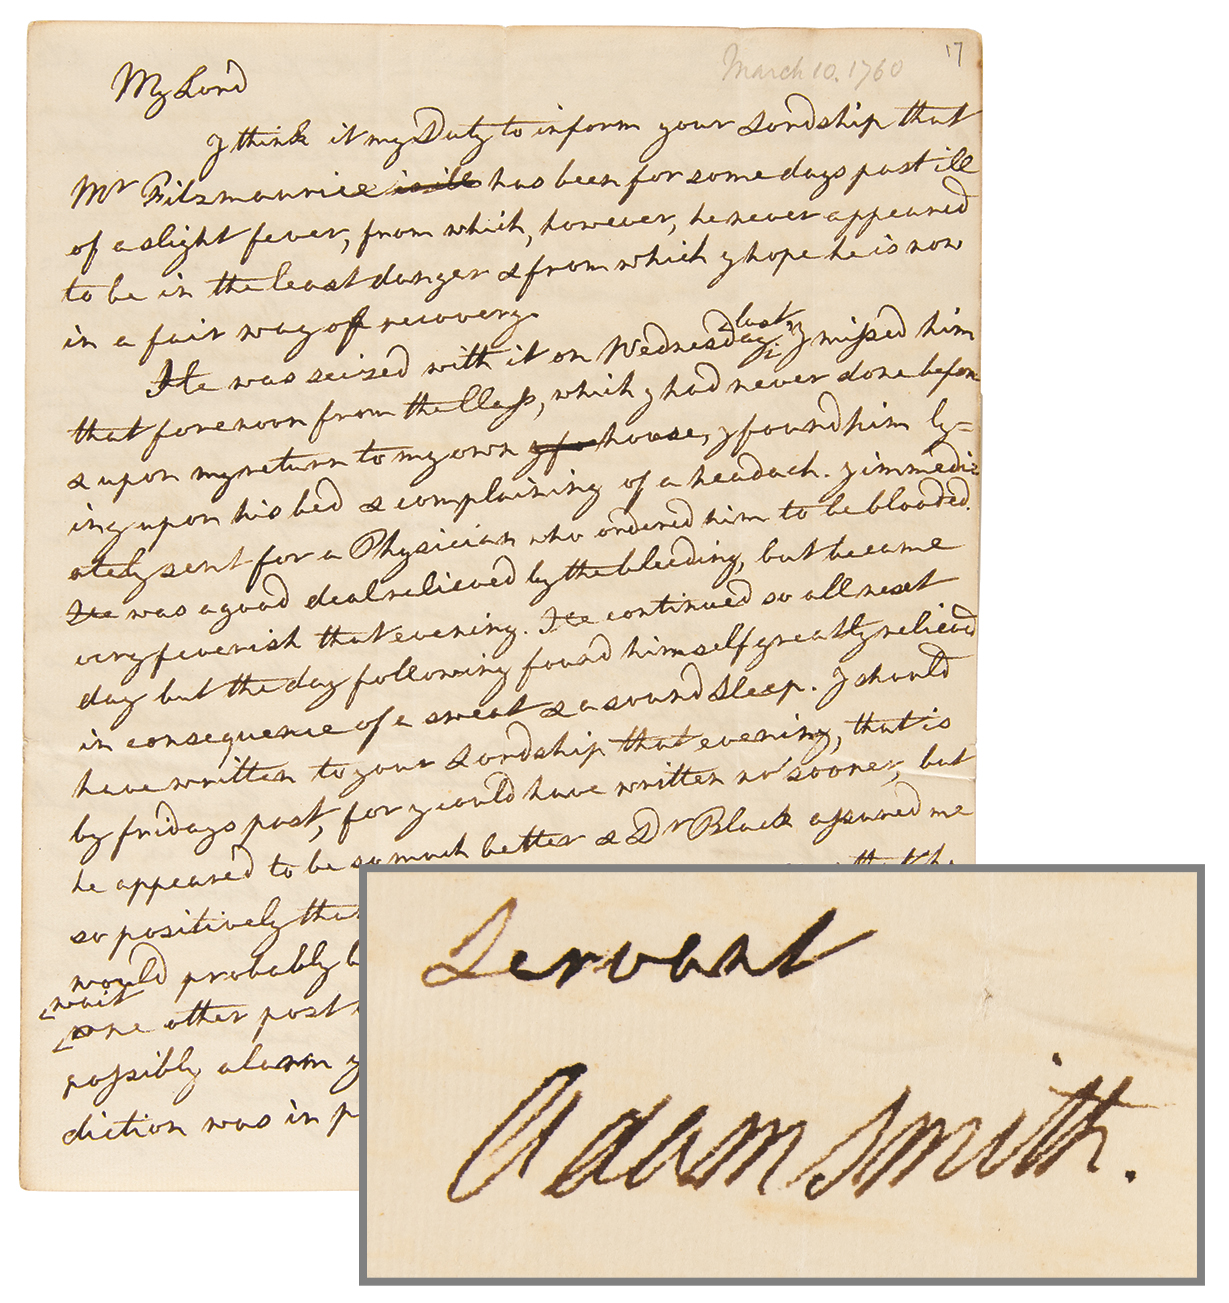 March 10. 1760
17
My Lord
I think it my Duty to inform your Lordship that
Mr Fitzmaurice is ill has been for some days past ill
of a slight fever, from which, however, he never appeared
to be in the least danger & from which I hope he is now
in a fair way of recovery.
He was seized with it on Wednesday last. I missed him
that forenoon from the Class, which I had never done before
& upon my return to my own house, I found him ly=
ing upon his bed & complaining of a headach. I immedi=
ately sent for a Physician who ordered him to be blooded.
He was a good deal relieved by the bleeding, but became
very feverish that evening. He continued so all next
day but the day following found himself greatly relieved
in consequence of a sweat & a sound Sleep. I should
have written to your Lordship that evening, that is
by fridays post, for I could have written no sooner, but
he appeared to be so much better & Dr Black assured me
so positively that
would probably
wait
one other post
possibly alarm
diction was in
Servant
Adam Smith.